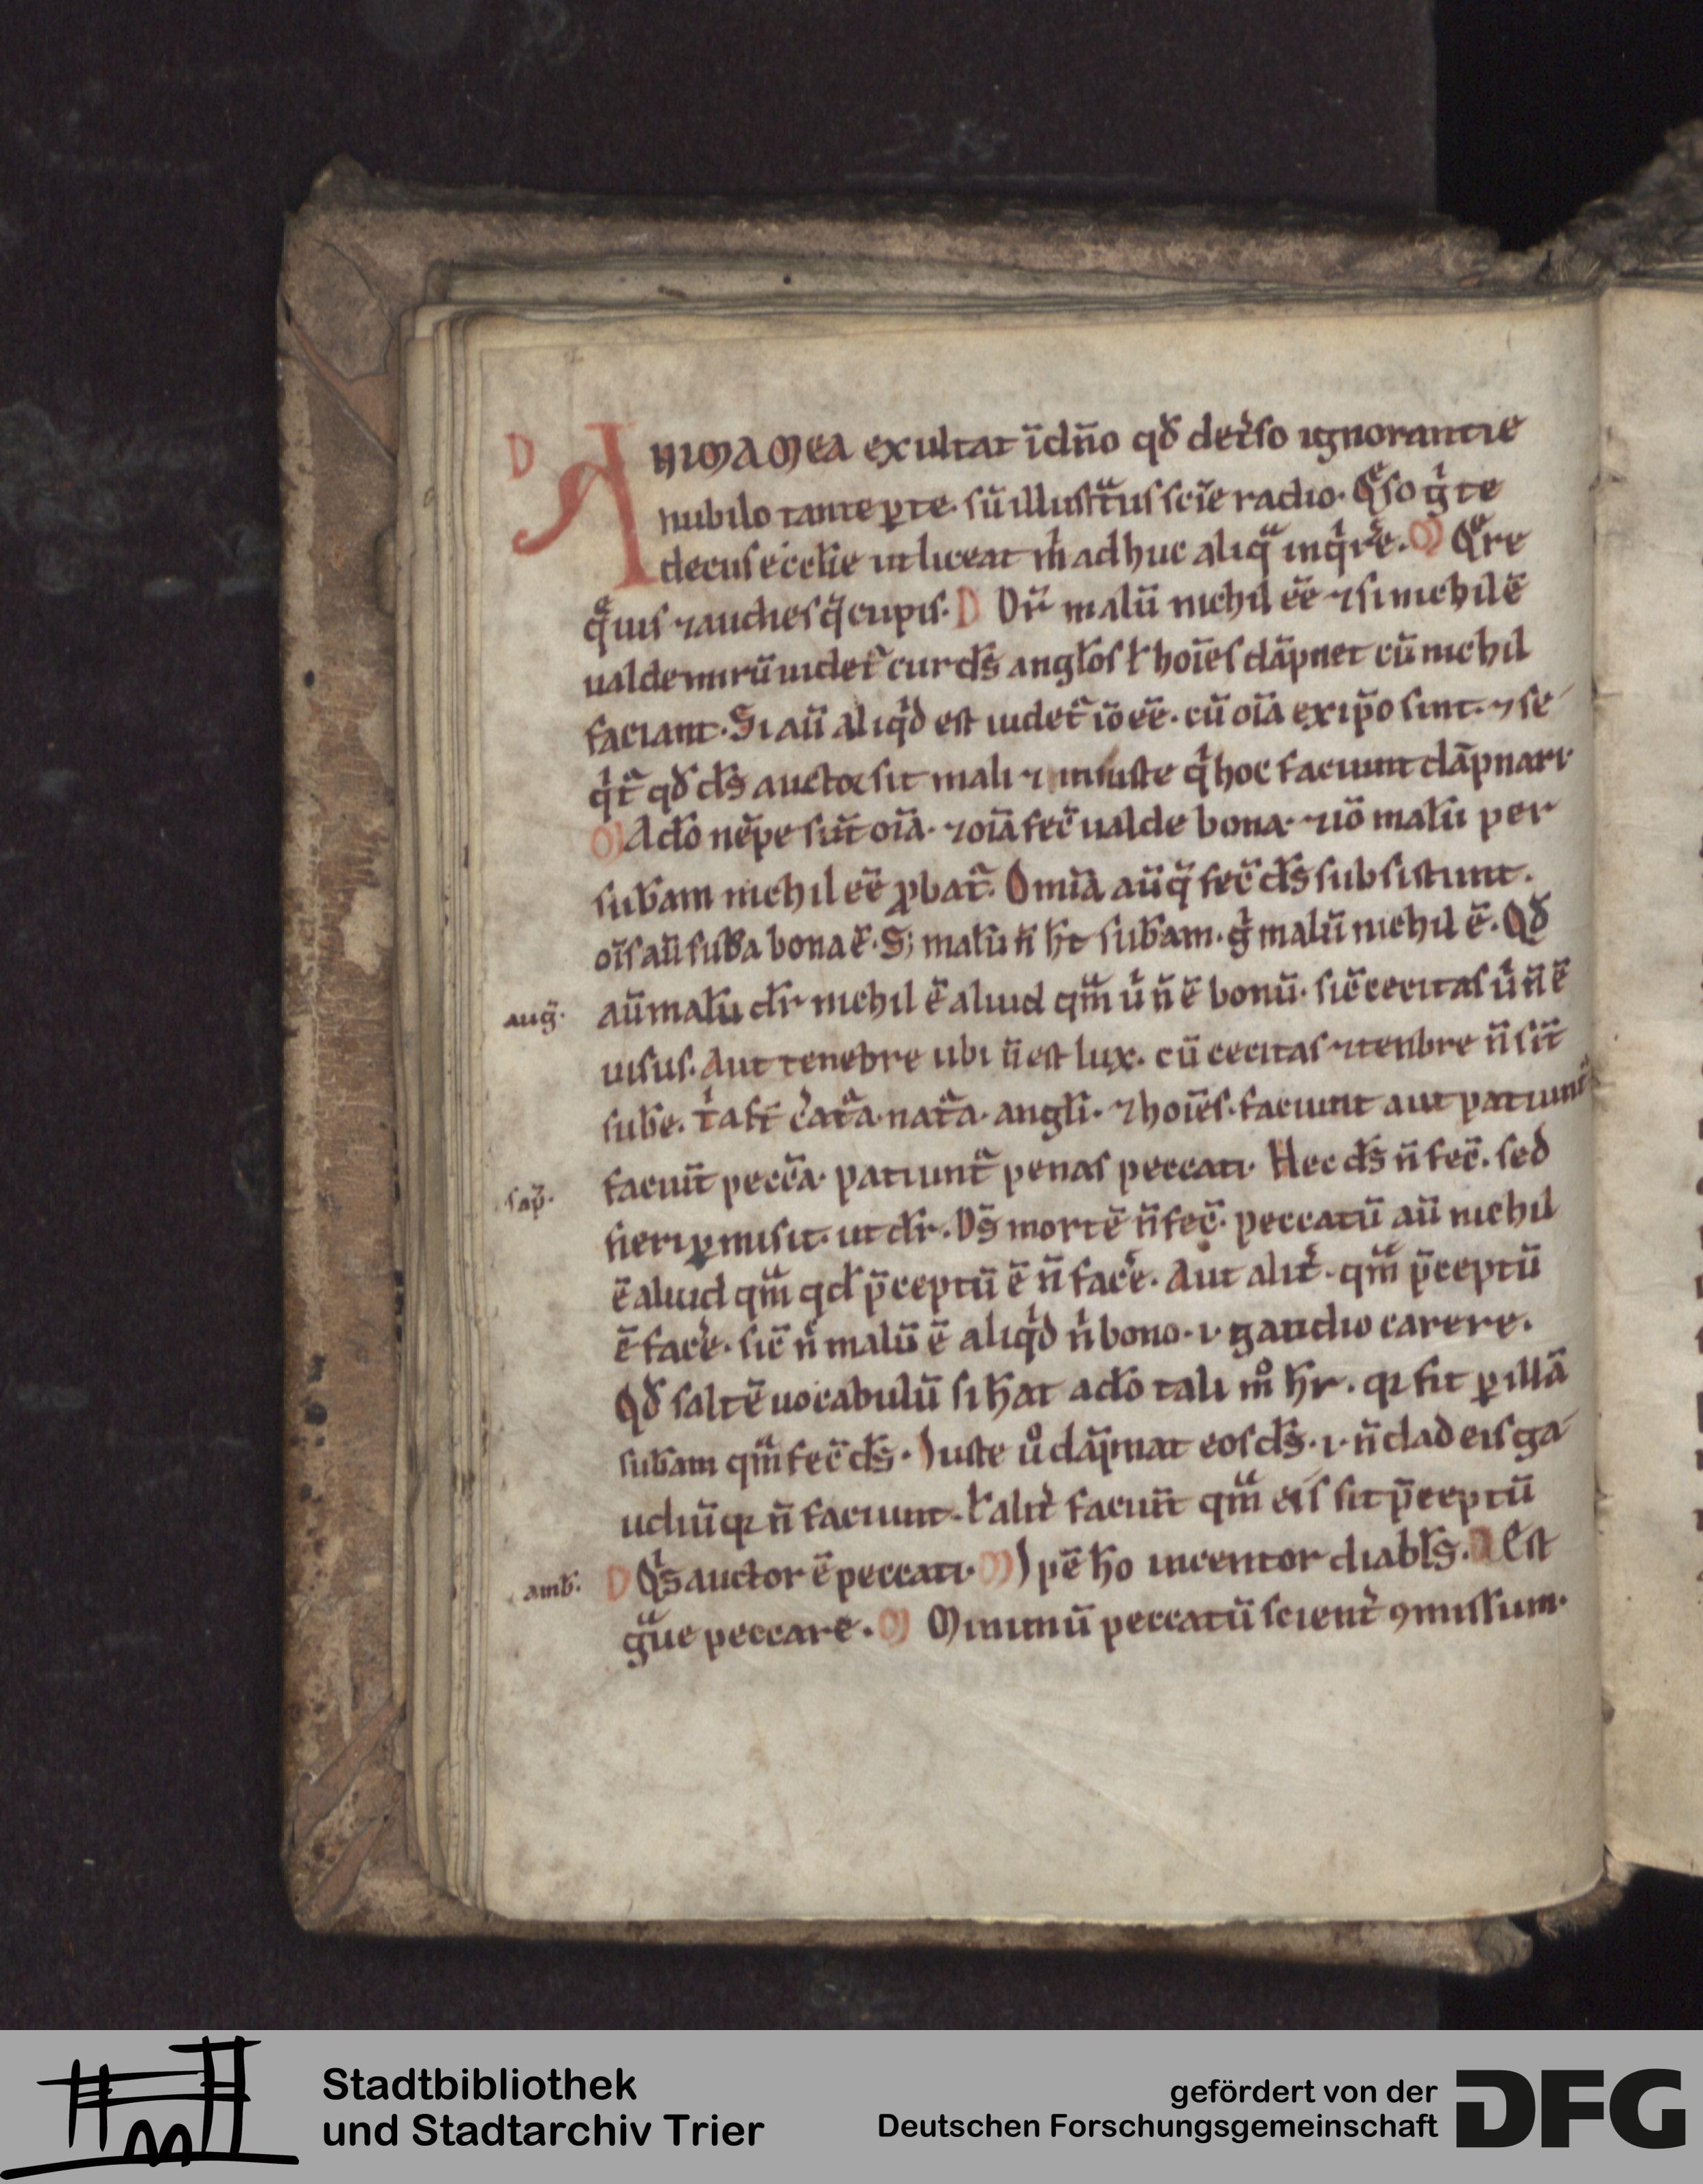 D
ANIMA MEA exultat ī dn̄o qđ det̾so ignorantie
nubilo tante ꝑte sū illustᵃtus scīe radio. Qͤso gͥ te
decus ecclīe ut liceat m̍ adhuc aliqᵃ inqͥre̾. M Qͤre
qͤ uis ⁊ audies q̄ cupis. D Dr̄ malū nichil ēē ⁊ si nichil ē
ualde mirū uidet᷑ cur ds̄ angl̄os ł hoīes dāpnet cū nichil
faciant. Si aū aliqͥd est uidet᷑ iō ēē. cū oīa ex ip̄o sint. ⁊ se
qͥt᷑ qđ ds̄ auctor sit mali ⁊ iniuste qͥ hoc faciunt dāpnari.
M A do̅ nēpe sūt oīa. ⁊ oīa fec̄ ualde bona. ⁊ iō malū per
sub̄am nichil ēē ꝓbat᷑. Omīa aū q̄ fec̄ ds̄ subsistunt.
oīs aū sub̄a bona ē. S; malū n̄ ħt sub̄am. gͥ malū nichil ē. Qđ
auḡ.
aū malū dr̄ nichil ē aliud qᵃm uͥ n̄ ē bonū. sic̄ cecitas uͥ n̄ ē
uisus. Aut tenebre ubi n̄ est lux. cū cecitas ⁊ tenbre n̄ sīt
sub̄e. angl̄i. ⁊ hoīes. faciunt aut patiunt᷑
sap̄.
faciūt pecc̄a. patiunt᷑ penas peccati. Hec ds̄ n̄ fec̄. sed
fieri ꝑmisit. ut dr̄. Ds̄ mortē n̄ fec̄. peccatū aū nichil
ē aliud qᵃm qđ p̄ceptū ē n̄ face̾. Aut alit̾. qᵃm p̄ceptū
ē face̾. sic̄ n̍ malū ē aliqͥd n̍ bono. ı. gaudio carere.
Qđ saltē uocabulū si ħat a do̅ tali mͦ ħr. qꝛ fit ꝑ illā
sub̄am qᵃm fec̄ ds̄. Iuste uͦ dāpnat eos ds̄. ı. n̄ dađ eis ga
udiū qꝛ n̄ faciunt. ł alit̾ faciūt qᵃm eis sit p̄ceptū
amb̄.
D Qͥs auctor ē peccati. M Ipē ħo incentor diabl̄s. D Est
gᵃue peccare. M Minimū peccatū scient̾ ꝯmissum.
Stadtbibliothek
und Stadtarchiv Trier
gefördert von der
Deutschen Forschungsgemeinschaft
DFG